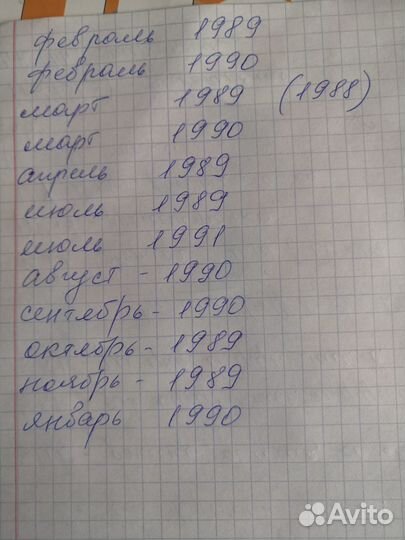 февраль 1989
февраль 1990
март 1989 (1988)
март 1990
апрель 1989
июль 1989
июль 1991
август - 1990
сентябрь - 1990
октябрь - 1989
ноябрь - 1989
январь 1990
Avito